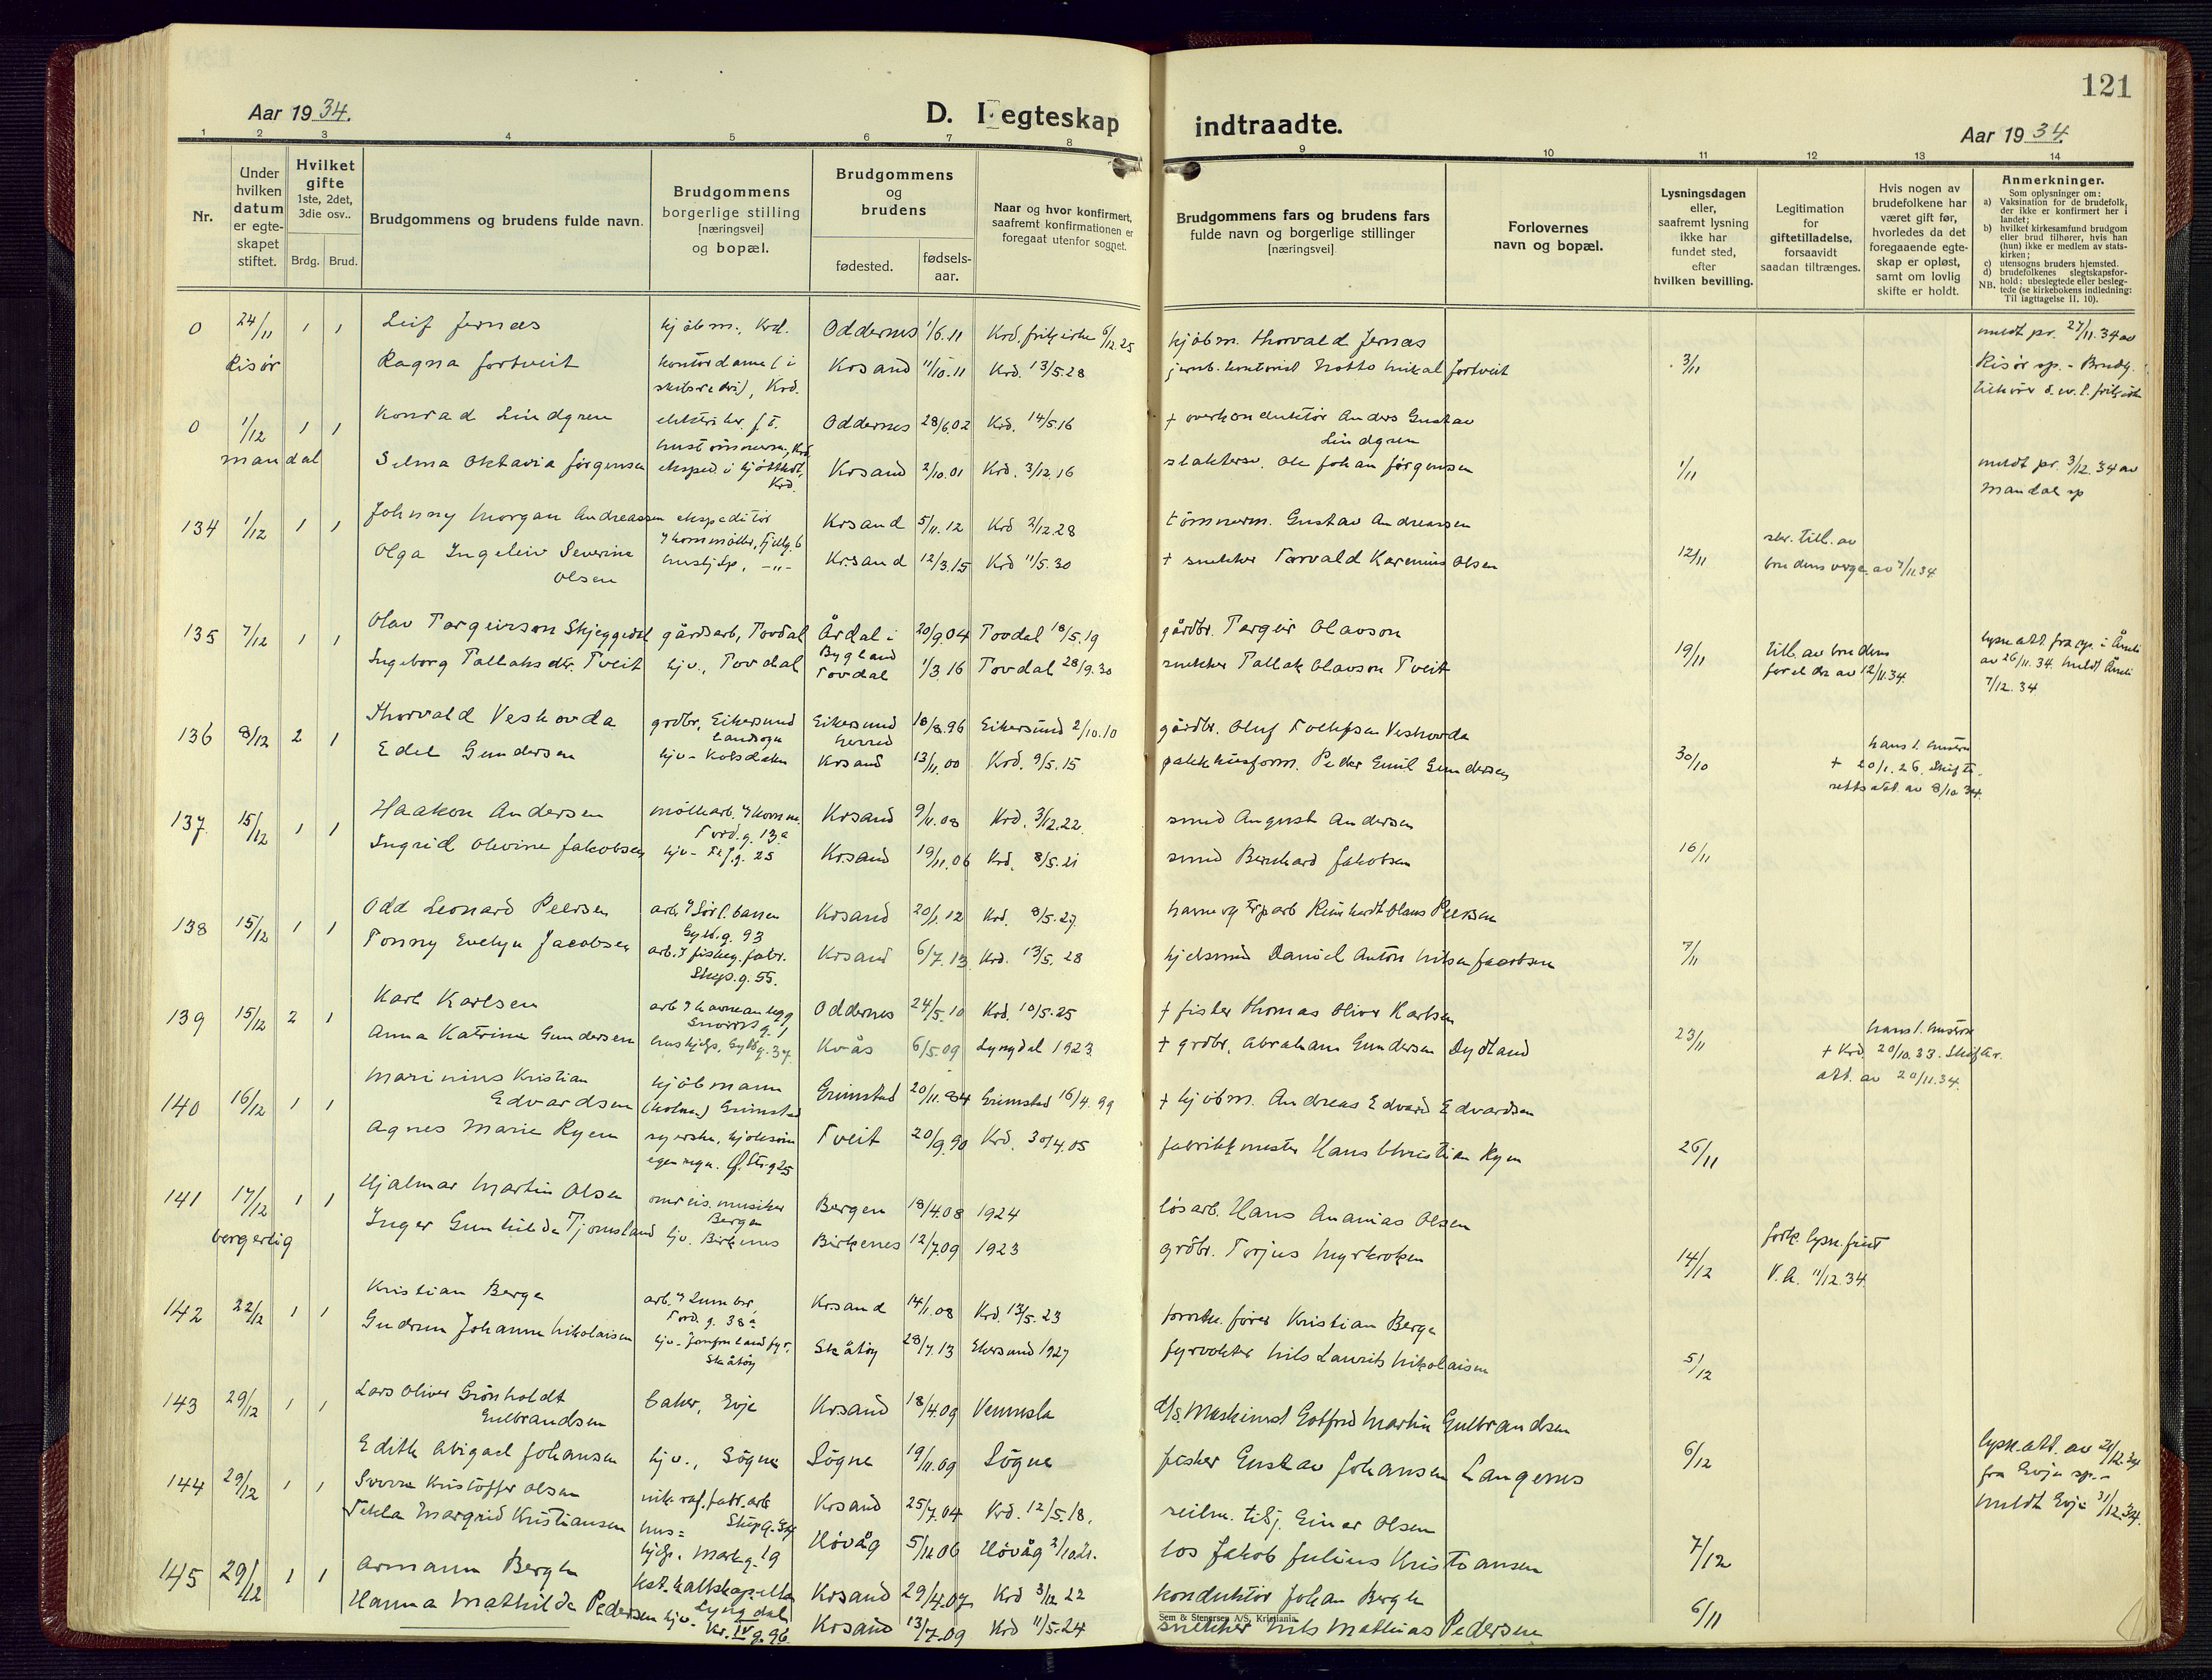 121
Aar 1934.
D. Iegteskap indtraadte.
Aar 1934.
1 2 3 4 5 6 7 8 9 10 11 12 13 14
Nr.
Under hvilken datum er egte- skapet stiftet.
Hvilket gifte 1ste, 2det, 3die osv..
Brdg. Brud.
Brudgommens og brudens fulde navn.
Brudgommens borgerlige stilling [næringsvei] og bopæl.
Brudgommens og brudens
fødested. fødsels- aar.
Naar og hvor konfirmert, saafremt konfirmationen er foregaat utenfor sognet.
Brudgommens fars og brudens fars fulde navn og borgerlige stillinger [næringsvei]
Forlovernes navn og bopæl.
Lysningsdagen eller, saafremt lysning ikke har fundet sted, efter hvilken bevilling.
Legitimation for giftetilladelse, forsaavidt saadan tiltrænges.
Hvis nogen av brudefolkene har været gift før, hvorledes da det foregaaende egte- skap er opløst, samt om lovlig skifte er holdt.
Anmerkninger.
Som oplysninger om:
a) Vaksination for de brudefolk, der ikke er konfirmert her i landet;
b) hvilket kirkesamfund brudgom eller brud tilhører, hvis han (hun) ikke er medlem av stats- kirken;
c) utensogns bruders hjemsted.
d) brudefolkenes slegtskapsfor- hold: ubeslegtede eller besleg-
NB. tede (se kirkebokens indledning: Til iagttagelse II, 10).
0 24/11 1 1 Leif Jernæs kjøbm., Krd. Oddernes 1/6.11 Krd. frikirke 6/12.25 kjøbm. Thorvald Jernæs meldt pr. 27/11.34 av
Risør Ragna Fortveit kontordame i Krsand 11/10.11 Krd. 13/5.28 3/11 Risør sp. - Brudg.
0 1/12 1 1 Konrad Lindgren Oddernes 28/6.02 Krd. 14/5.16 + overkonduktør Anders Gustav
Lindgren
Mandal Selma Oktavia Jørgensen eksped. i kjøttktr, Krd. Krsand 2/10.01 Krd. 3/12.16 Ole Johan Jørgensen 1/11 meldt pr. 3/12.34 av
Mandal sp
134 1/12 1 1 Johnny Morgan Andreassen ekspeditør Krsand 5/11.12 Krd 2/12.28 tømmerm. Gustav Andreassen
Olga Ingeleiv Severine hushjelp, -"- Kr.sand 12/3.15 Krd 11/5.30 + snekker Torvald Karenius Olsen 12/11 skr. till. av
Olsen brudens verge av 7/11.34
135 7/12 1 1 Olav Targeirson Skjeggedal gårdsarb, Tovdal Årdal i Bygland 20/9.04 Tovdal 18/5.19 gårdbr. Targeir Olavson
Ingeborg Tallaksdtr. Tveit hjv., Tovdal Tovdal 1/3.16 Tovdal 28/9.30 snekker Tallak Olavson Tveit 19/11 till. av brudens
foreldre av 12/11.34. lysn.att. fra sp. i Åmli
av 26/11.34. meldt Åmli
7/12.34
136 8/12 2 1 Thorvald Veshovda grdbr, Eikersund landsogn Eikersund herred 18/8.96 Eikersund 2/10.10 gårdbr. Oluf Tollefsen Veshovda
Edel Gundersen hjv- Kobsdalen Krsand 13/11.00 Krd. 9/5.15 pakkhusform. Peder Emil Gundersen 30/10 hans f. hustru
+ 20/1.26. Skifte-
retts att. av 8/10 34.
137 15/12 1 1 Haakon Andersen Tord.g. 13a Krsand 9/11.08 Krd. 3/12.22. smed August Andersen
Ingrid Olovine Jakobsen hjv- Krsand 19/11.06 Krd. 8/5.21 smed Bernhard Jakobsen 16/11
138 15/12 1 1 Odd Leonard Peersen Gyld.g. 93 Krsand 20/1.12 Krd. 8/5.27. Reinhardt Olaus Peersen
Tonny Evelyn Jacobsen arb. i fiskeg.fabr. Skip.g. 55. Krsand 6/7.13 Krd. 13/5.28 kjelsmed Daniel Anton Nilsen Jacobsen 7/11
139 15/12 2 1 Karl Karlsen arb i havneanlegg Oddernes 24/5.10 Krd. 10/5.25 + fisker Thomas Oliver Karlsen
Anna Katrine Gundersen hushjelp, Gyldg. 37. Kvås 6/5.09 Lyngdal 1923 + grdbr. Abraham Gundersen Dydland 23/11 hans f. hustru
+ Krd. 20/10.33. Skiftar.
att. av 20/11.34.
140 16/12 1 1 Marinius Kristian kjøbmann Grimstad 20/11.84 Grimstad 16/4.99 + kjøbm. Andreas Edvard Edvardsen
Edvardsen (kolon) Grimstad
Agnes Marie Ryen syerske, kjolesøm Tveit 20/9.90 Krd. 30/4.05 fabrikkmester Hans Christian Ryen 26/11
141 17/12 1 1 Hjalmar Martin Olsen omreis. musiker Bergen Bergen 18/4.08 1924 løsarb. Hans Ananias Olsen
borgerlig Inger Gunhilda Tjomsland hjv. Birkenes Birkenes 12/7.09 1923 grdbr. Torjus Myrkroken 14/12 fork. lysn. frist
V.A. 11/12.34.
142 22/12 1 1 Kristian Berge Tord.g. 38a Kr.sand 14/1.08 Krd. 13/5.23 Kristian Berge
Gudrun Johanne Nikolaisen hjv- Jomfruland fyr, Skåtøy Skåtøy 28/7.13 Ekersund 1927 fyrvokter Nils Laurits Nikolaisen 5/12
143 29/12 1 1 Lars Oliver Grönholdt baker, Evje Krsand 18/4.09 Vennesla d/s. Maskinist Gotfred Martin Gulbrandsen
Gulbrandsen
Edith Abigael Johansen hjv., Søgne Søgne 19/11.09 Søgne fisker Gustav Johansen Langenes 6/12 lysn.att. av
fra Evje sp.-
meldt Evje 31/12.34.
144 29/12 1 1 Sverre Kristoffer Olsen nik.raf.fabr.arb Krsand 25/7.04 Krd. 12/5.18. Einar Olsen
Tekla Margrid Kristiansen hus=
hjelp. Markg. 19 Høvåg 5/12.06 Høvåg los Jakob Julius Kristiansen 7/12
145 29/12 1 1 Armann Bergh Lyngdal Krsand 29/4.07. Krd 3/12 22 konduktør Johan Bergh
Hanna Mathilde Pedersen hjv- Kr. IV g. 96 Krsand 13/7.09 Krd 11/5.24 snekker Nils Mathias Pedersen 6/11
Sem & Stenersen A/S, Kristiania.